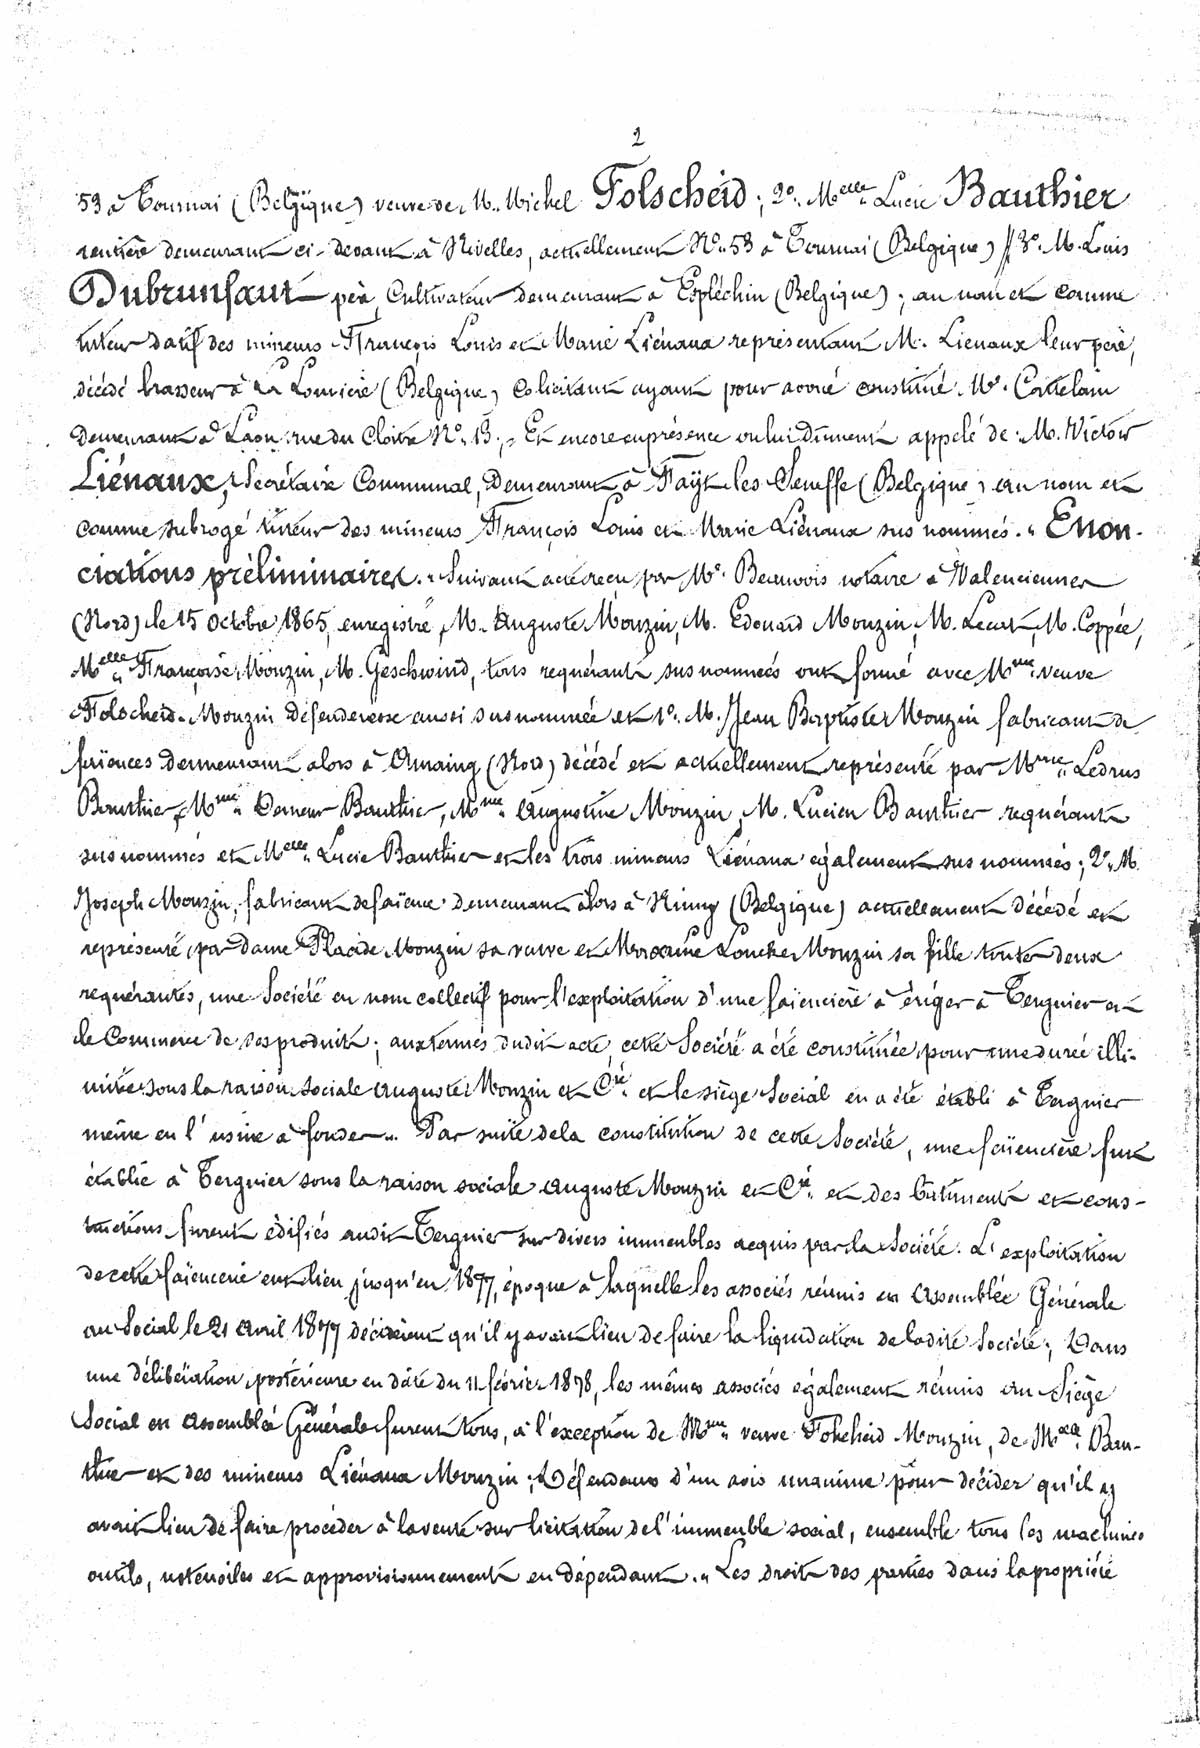 2
53 à Tournai (Belgique) veuve de M. Michel Folscheid; 2o. Melle Lucie Bauthier
rentière demeurant ci-devant à Nivelles, actuellement No. 53 à Tournai (Belgique) 3o. M. Louis
Dubrunfaut père, Cultivateur demeurant à Espléchin (Belgique); au nom et comme
tuteur datif des mineurs François Louis et Marie Liénaux représentant M. Liénaux leur père,
décédé brasseur à La Louvière (Belgique) colicitant ayant pour avoué constitué Me. Cattelain
demeurant à Laon rue du Cloitre No. 13. Et encore en présence ou lui dûment appelé de M. Victor
Liénaux, Secrétaire Communal, demeurant à Fayt les Seneffe (Belgique) au nom et
comme subrogé tuteur des mineurs François Louis et Marie Liénaux sus nommés. Enon-
ciations préliminaires. Suivant acte reçu par Me. Beauvois notaire à Valenciennes
(Nord) le 15 octobre 1865, enregistré, M. Auguste Mouzin, M. Edouard Mouzin, M. Lecat, M. Coppée,
Melle Françoise Mouzin, M. Geschwind, tous requérants sus nommés ont formé avec Mme veuve
Folscheid-Mouzin défenderesse aussi sus nommée et 1o. M. Jean Baptiste Mouzin fabricant de
faïences demeurant alors à Onnaing (Nord) décédé et actuellement représenté par Mme Ledrus
Bauthier, Mme Demeur Bauthier, Mme Augustine Mouzin, M. Lucien Bauthier requérants
sus nommés et Melle Lucie Bauthier et les trois mineurs Liénaux également sus nommés; 2o. M.
Joseph Mouzin, fabricant de faïence demeurant alors à Nimy (Belgique) actuellement décédé et
représenté par dame Placide Mouzin sa veuve et Maxime Loncke Mouzin sa fille toutes deux
requérantes, une Société en nom collectif pour l'exploitation d'une faïencière à ériger à Tergnier et
le Commerce de ses produits; aux termes dudit acte, cette Société a été constituée pour une durée illi-
mitée sous la raison sociale Auguste Mouzin et Cie et le siège Social en a été établi à Tergnier
même en l'usine à fonder. Par suite de la constitution de cette Société, une faïencière fut
établie à Tergnier sous la raison sociale Auguste Mouzin et Cie et des bâtiments et cons-
tructions furent édifiés audit Tergnier sur divers immeubles acquis par la Société. L'exploitation
de cette faïencerie eut lieu jusqu'en 1877, époque à laquelle les associés réunis en Assemblée Générale
au Social le 21 avril 1877 décidèrent qu'il y avait lieu de faire la liquidation de ladite Société; Dans
une délibération postérieure en date du 11 février 1878, les mêmes associés également réunis au Siège
Social en Assemblée Générale furent tous, à l'exception de Mme veuve Folscheid Mouzin, de Melle Bau-
thier et des mineurs Liénaux Mouzin; Défendeurs d'un avis unanime pour décider qu'il y
avait lieu de faire procéder à la vente sur licitation de l'immeuble social, ensemble tous les machines
outils, ustensiles et approvisionnements en dépendant. Les droits des parties dans la propriété